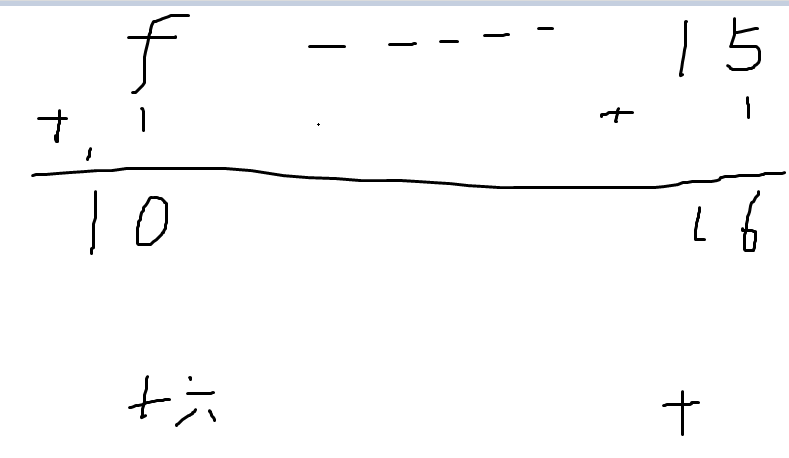 f - - - - - 15
+ 1 + 1
10 16
十六 十